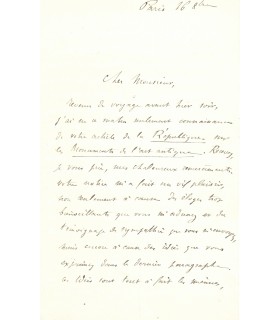 Paris 16 8bre
Cher Monsieur,
Revenu de voyage avant hier soir,
j'ai eu ce matin seulement connaissance
de votre article de la République sur
les Monuments de l'art antique. Recevez,
je vous prie, mes chaleureux remerciements,
votre m'a fait un vif plaisir,
non seulement à cause des éloges trop
bienveillants que vous m'adressez et du
témoignage de sympathie que vous m'envoyez,
mais encore à cause des idées que vous
exprimez dans le dernier paragraphe.
Ces idées sont tout à fait les miennes,